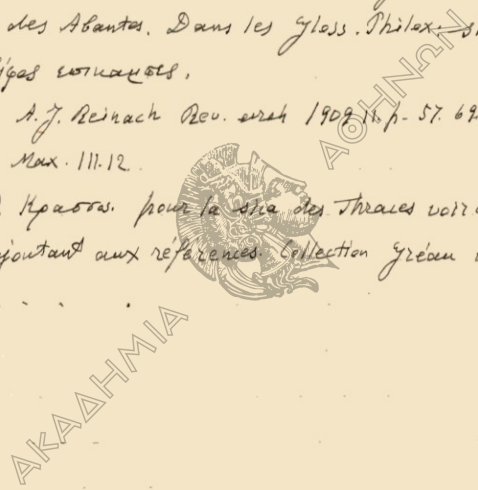 des Abantes. Dans les Gloss. Philox.
A. J. Reinach Rev. arch 1909 II. p. 57. 69
Max. III.12
Κρασσος. pour la sica des Thraces voir
ajoutant aux références. Collection Gréau
ΑΚΑΔΗΜΙΑ
ΑΘΗΝΩΝ